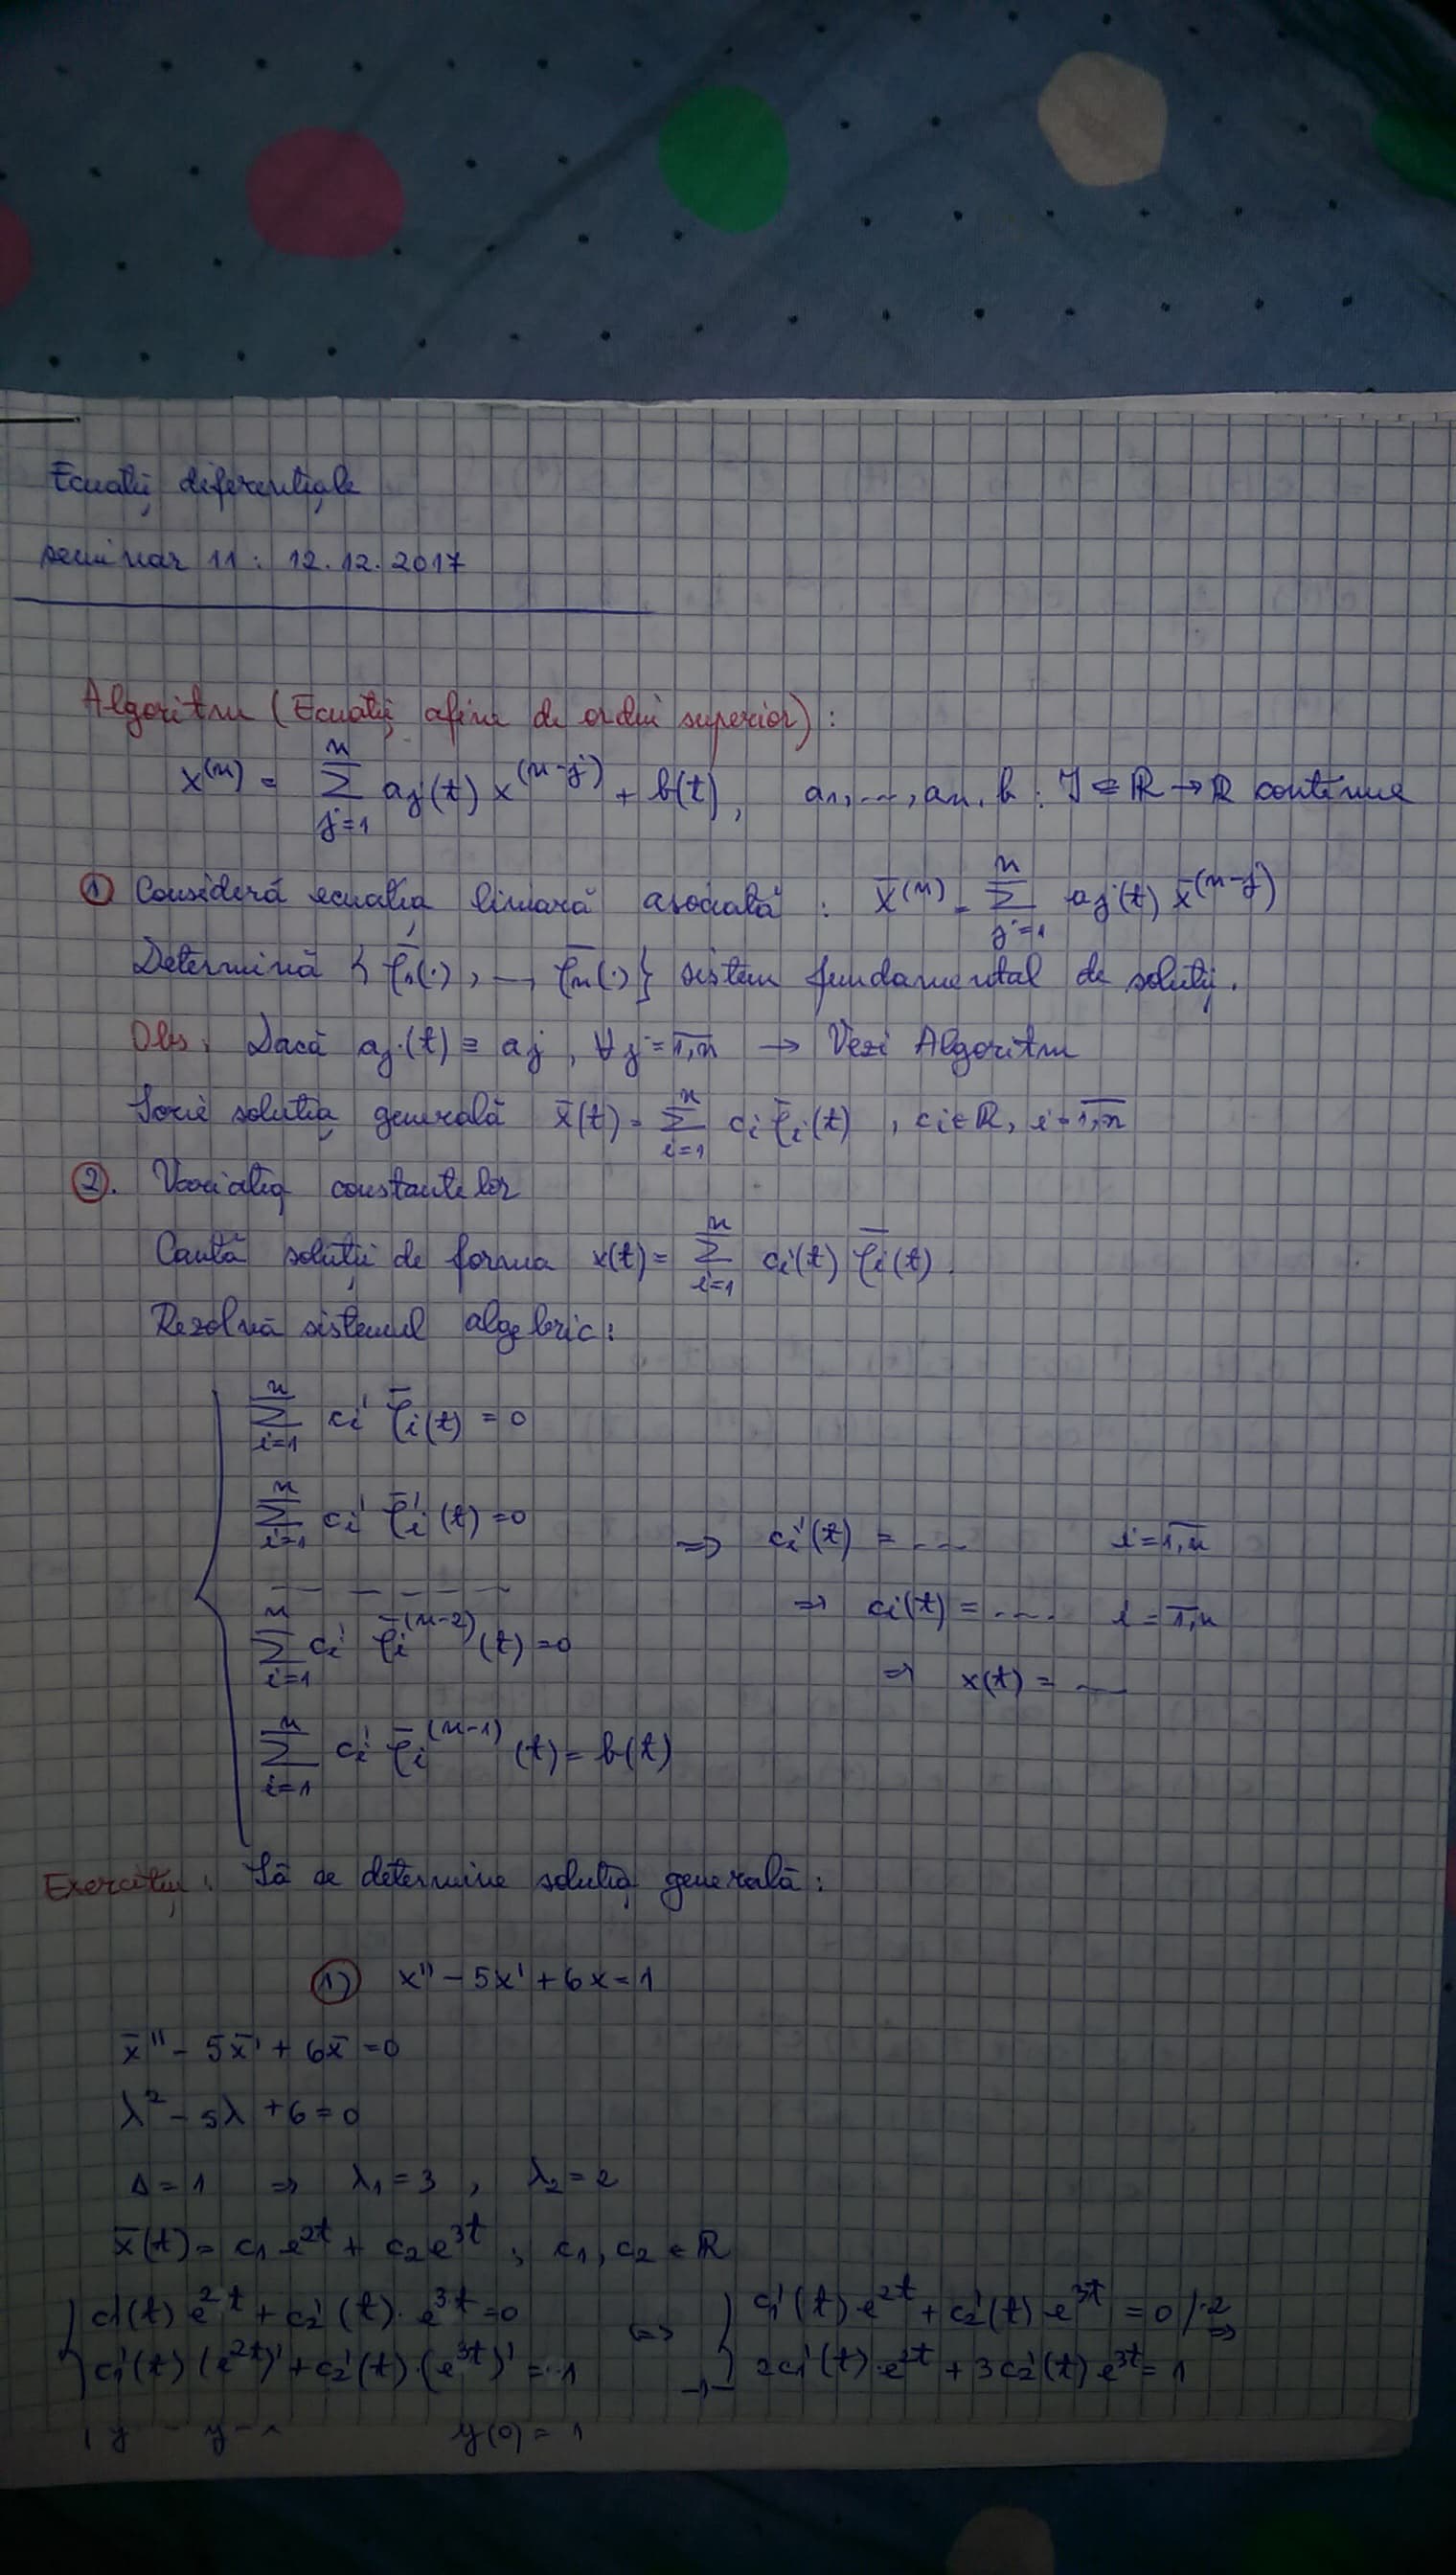 Ecuații diferențiale
seminar 11: 12.12.2017
Algoritm (Ecuații afine de ordin superior):
x^(n) = Σ_{j=1}^{n} a_j(t) x^(n-j) + b(t), a_1, ..., a_n, b : J ⊆ ℝ → ℝ continue
① Consideră ecuația liniară asociată : x̄^(n) = Σ_{j=1}^{n} a_j(t) x̄^(n-j)
Determină { φ̄_1(·), ..., φ̄_n(·) } sistem fundamental de soluții.
Obs: Dacă a_j(t) ≡ a_j, ∀ j = 1,n → Vezi Algoritm
Scrie soluția generală x̄(t) = Σ_{i=1}^{n} c_i φ̄_i(t), c_i ∈ ℝ, i = 1,n
②. Variația constantelor
Caută soluții de forma x(t) = Σ_{i=1}^{n} c_i(t) φ̄_i(t).
Rezolvă sistemul algebric:
Σ_{i=1}^{n} c_i' φ̄_i(t) = 0
Σ_{i=1}^{n} c_i' φ̄_i'(t) = 0 ⇒ c_i'(t) = ... i = 1,n
⇒ c_i(t) = .... i = 1,n
Σ_{i=1}^{n} c_i' φ̄_i^(n-2)(t) = 0
⇒ x(t) = ...
Σ_{i=1}^{n} c_i' φ̄_i^(n-1)(t) = b(t)
Exercițiu: Să se determine soluția generală:
① x'' - 5x' + 6x = 1
x̄'' - 5x̄' + 6x̄ = 0
λ² - 5λ + 6 = 0
Δ = 1 ⇒ λ_1 = 3, λ_2 = 2
x̄(t) = c_1 e^{2t} + c_2 e^{3t}, c_1, c_2 ∈ ℝ
{ c_1'(t) e^{2t} + c_2'(t) · e^{3t} = 0 ⇔ { c_1'(t) · e^{2t} + c_2'(t) · e^{3t} = 0 /·2 ⇒
c_1'(t) (e^{2t})' + c_2'(t) · (e^{3t})' = 1 2c_1'(t) · e^{2t} + 3c_2'(t) e^{3t} = 1
y(0) = 1